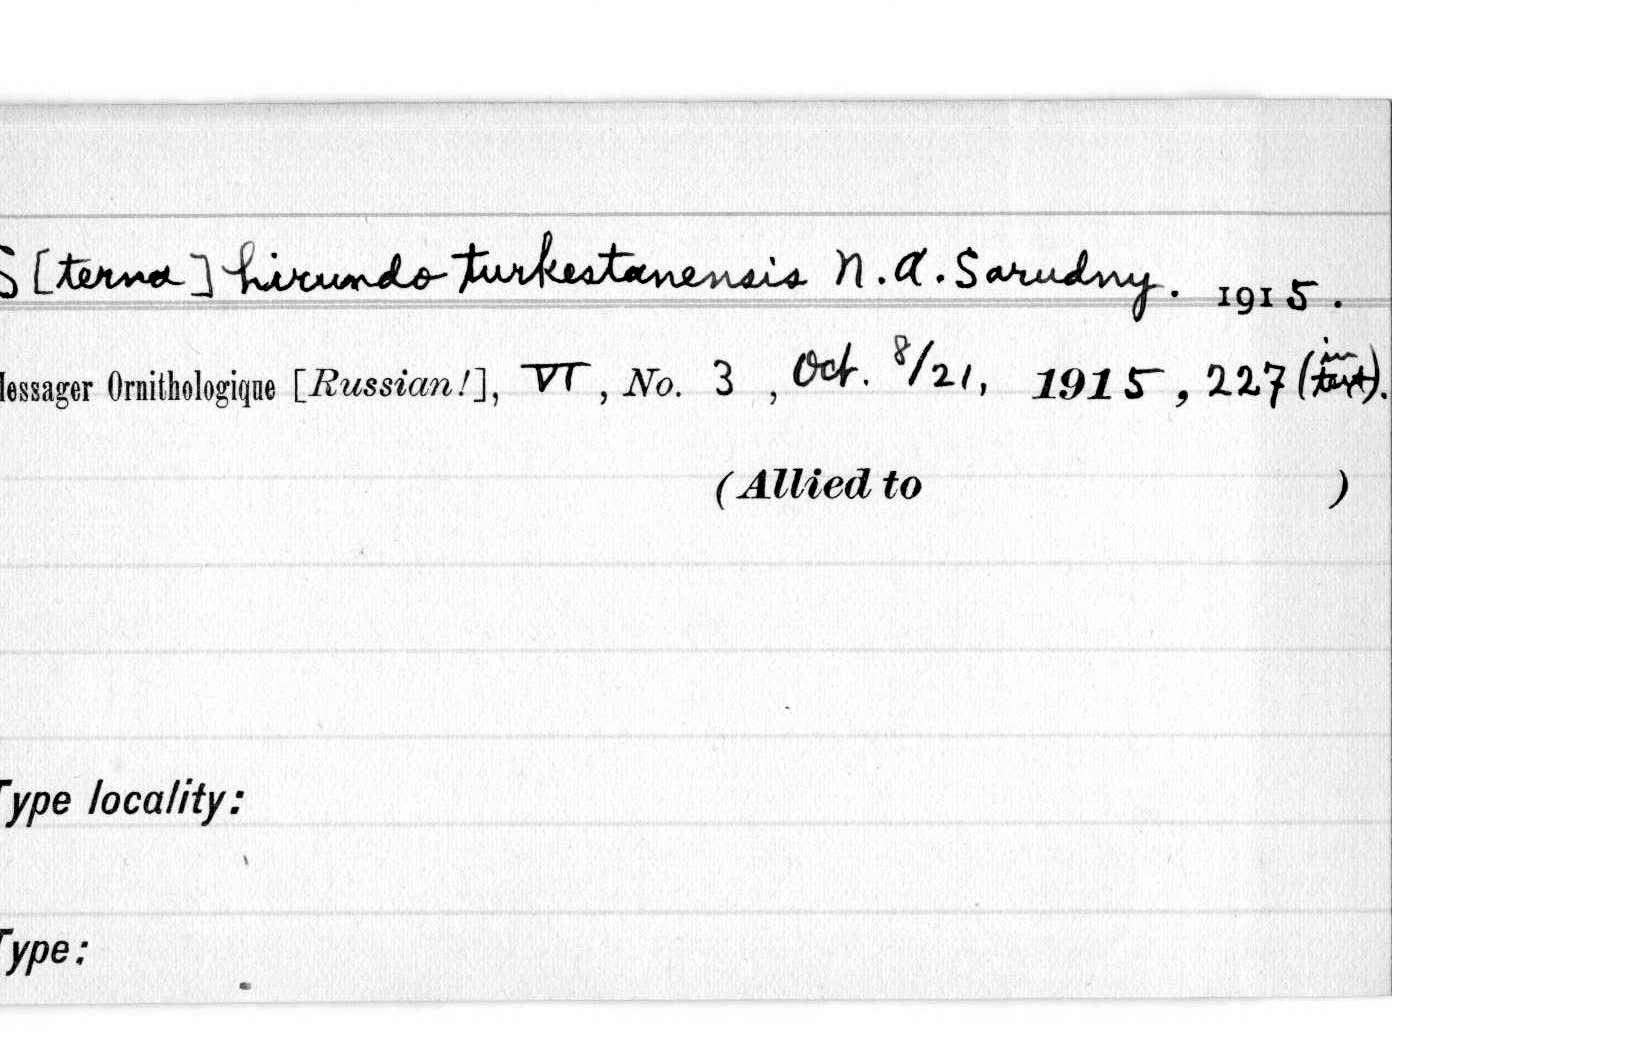 S[terna] hirundo turkestanensis N.A. Sarudny. 1915.
Messager Ornithologique [Russian!], VI, No. 3, Oct. 8/21, 1915, 227 (in text).
(Allied to )
Type locality:
Type: